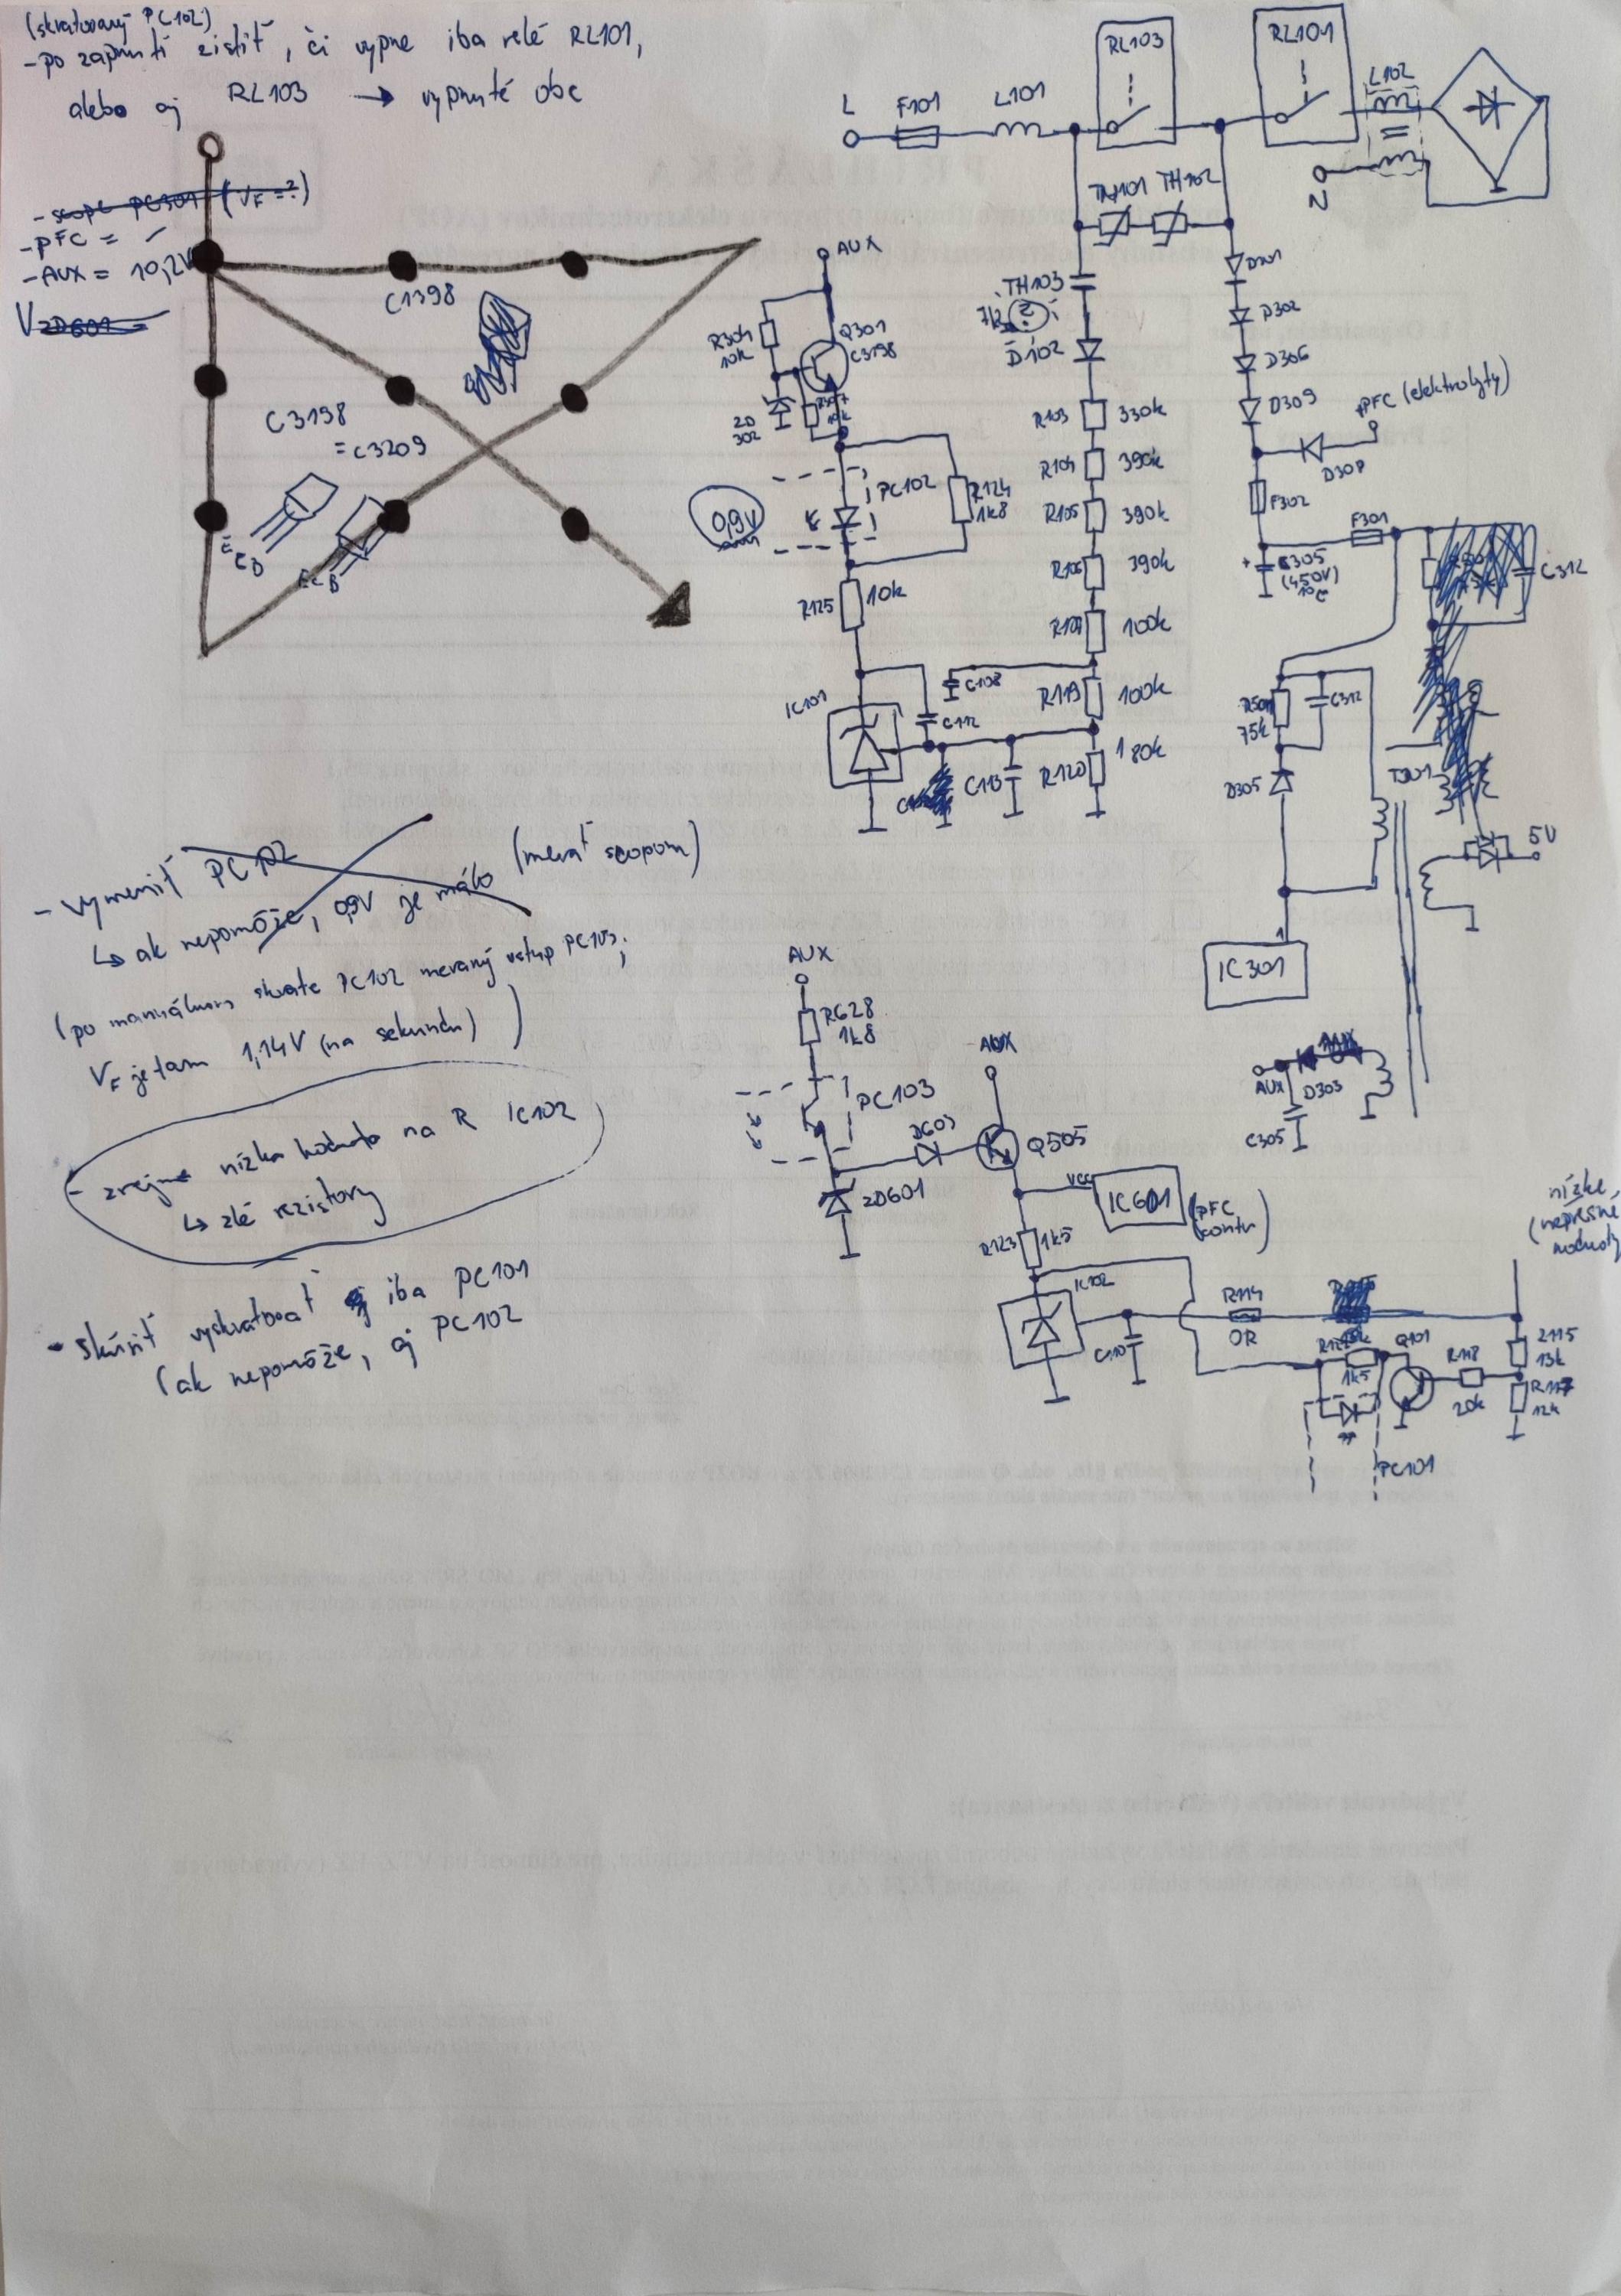 (skratovaný PC102)
- po zapnutí zistiť, či vypne iba relé RL101,
alebo aj RL103 → vypnuté obe
- scope PC301 (VF=?)
- PFC = ✓
- AUX = 10,2V
VZD601 =
C1398
C3198
= C3209
ECB
ECB
L
F101
L101
RL103
RL101
L102
N
TH101 TH102
TH103
D102
R103 330k
R104 390k
R105 390k
R106 390k
100k
R119 100k
R120 180k
C108
C112
C113
D302
D306
D309
PFC (elektrolyty)
F302
F301
C305
(450V)
C312
75k
C312
D305
5V
IC301
AUX
D303
C305
AUX
R304
10k
Q301
C3198
ZD
302
PC102
R124
1k8
0,9V
R125 10k
IC101
- vymeniť PC102
↳ ak nepomôže, 0,9V je málo (merať scopom)
(po manuálnom skrate PC102 meraný vstup PC103;
VF je tam 1,14V (na sekundu) )
- zrejme nízka hodnota na R IC102
↳ zlé rezistory
- skúsiť vyskratovať iba PC101
(ak nepomôže, aj PC102
AUX
R628
1k8
PC103
D607
ZD601
AUX
Q505
VCC
IC601
(PFC
contr)
R123 1k5
IC102
C107
R114
0R
1k5
Q101
R118
20k
R115
13k
R117
12k
PC101
nízke,
(nepresné
hodnoty